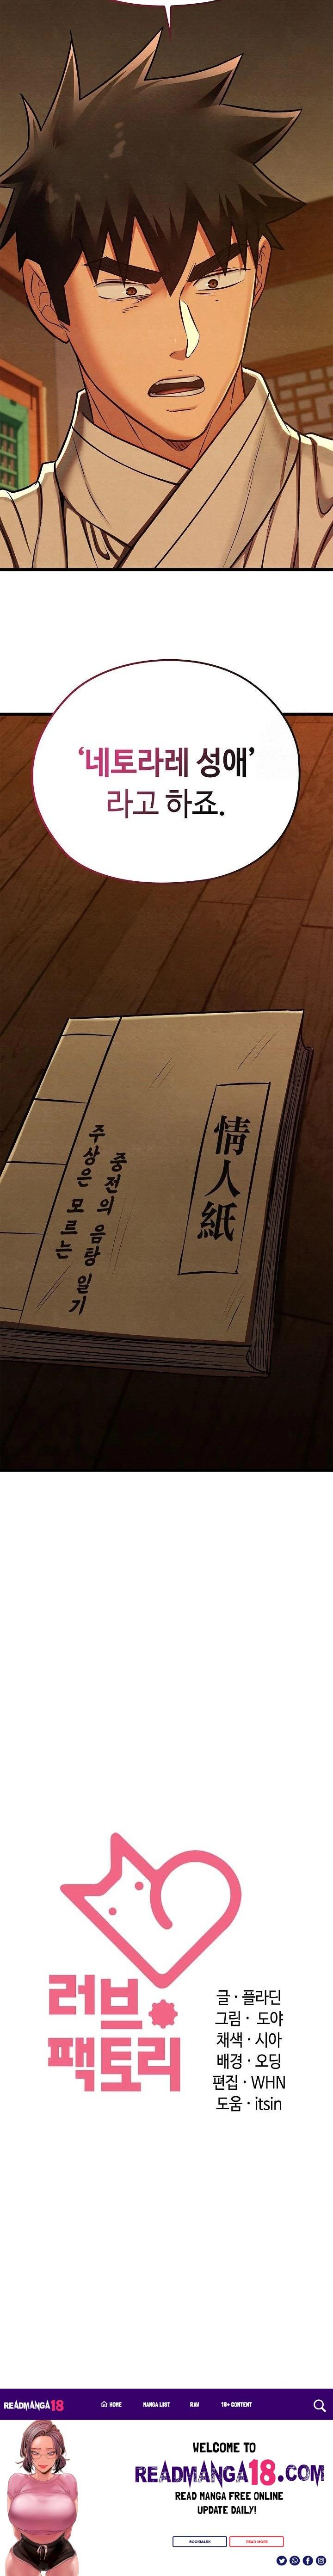 ‘네토라레 성애’
라고 하죠.
情人紙
중전의 음탕 일기
주상은 모르는
러브
팩토리
글 · 플라딘
그림 · 도야
채색 · 시아
배경 · 오딩
편집 · WHN
도움 · itsin
READMANGA18
HOME
MANGA LIST
RAW
18+ CONTENT
WELCOME TO
READMANGA18.COM
READ MANGA FREE ONLINE
UPDATE DAILY!
BOOKMARK
READ MORE